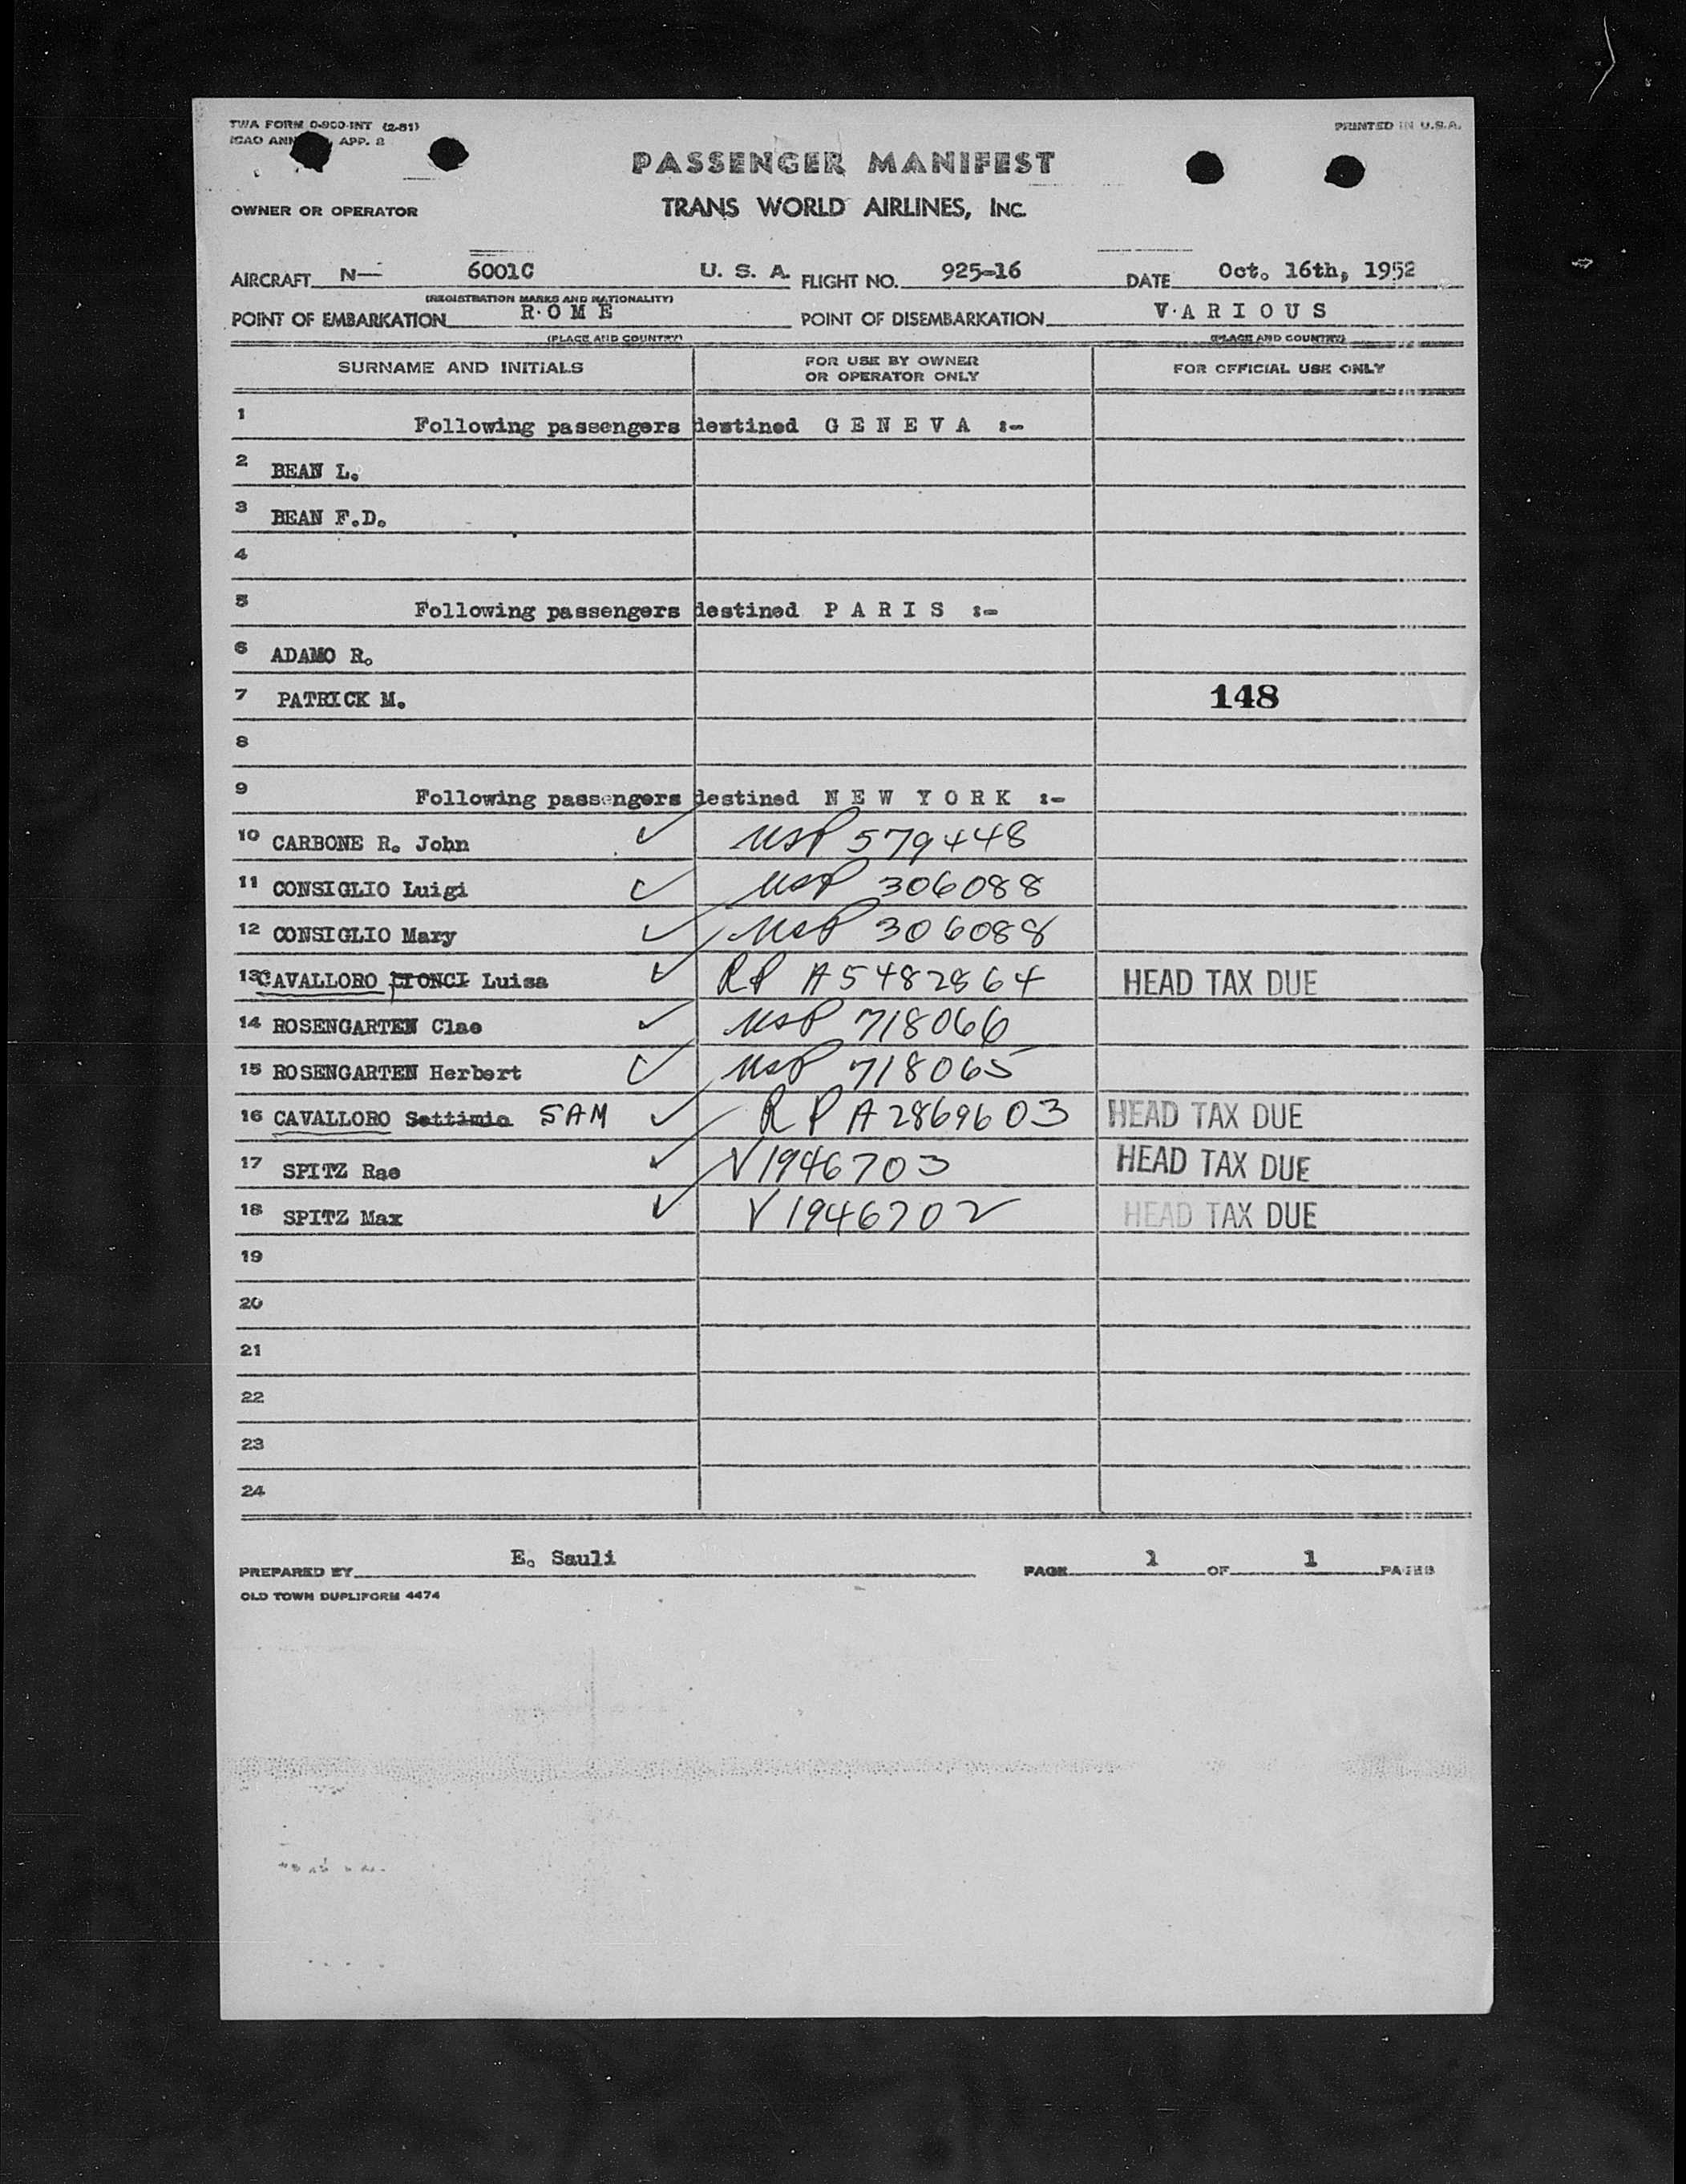 TWA FORM 0-900-INT (2-51)
PRINTED IN U.S.A.
ICAO ANN APP. 2
PASSENGER MANIFEST
OWNER OR OPERATOR TRANS WORLD AIRLINES, INC.
AIRCRAFT N— 6001C U. S. A. FLIGHT NO. 925-16 DATE Oct. 16th, 1952
(REGISTRATION MARKS AND NATIONALITY)
POINT OF EMBARKATION R O M E POINT OF DISEMBARKATION V A R I O U S
(PLACE AND COUNTRY) (PLACE AND COUNTRY)
SURNAME AND INITIALS FOR USE BY OWNER OR OPERATOR ONLY FOR OFFICIAL USE ONLY
1 Following passengers destined G E N E V A :-
2 BEAN L.
3 BEAN F.D.
4
5 Following passengers destined P A R I S :-
6 ADAMO R.
7 PATRICK M. 148
8
9 Following passengers destined N E W Y O R K :-
10 CARBONE R. John ✓ USP 579448
11 CONSIGLIO Luigi ✓ USP 306088
12 CONSIGLIO Mary ✓ USP 306088
13 CAVALLORO CIONCI Luisa ✓ RP A5482864 HEAD TAX DUE
14 ROSENGARTEN Clae ✓ USP 718066
15 ROSENGARTEN Herbert ✓ USP 718065
16 CAVALLORO Settimio SAM ✓ RP A2869603 HEAD TAX DUE
17 SPITZ Rae ✓ V1946703 HEAD TAX DUE
18 SPITZ Max ✓ V1946702 HEAD TAX DUE
19
20
21
22
23
24
PREPARED BY E. Sauli PAGE 1 OF 1 PAGES
OLD TOWN DUPLIFORM 4474